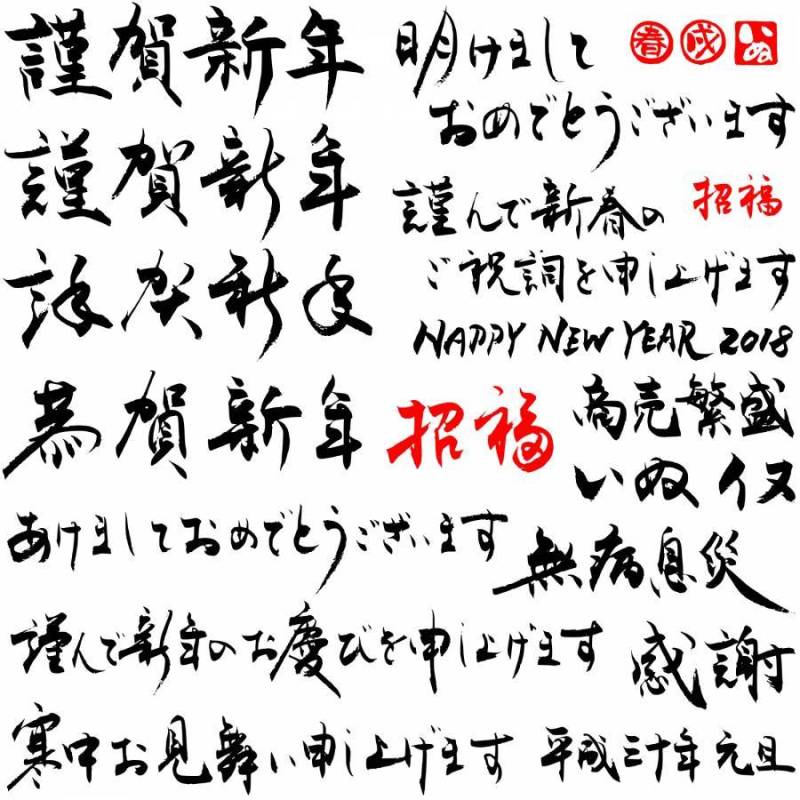 謹賀新年
謹賀新年
謹賀新年
恭賀新年
あけましておめでとうございます
謹んで新年のお慶びを申し上げます
寒中お見舞い申し上げます
明けまして
おめでとうございます
春
戌
いぬ
謹んで新春の
招福
ご祝詞を申し上げます
HAPPY NEW YEAR 2018
招福
商売繁盛
いぬ イヌ
無病息災
感謝
平成三十年 元旦